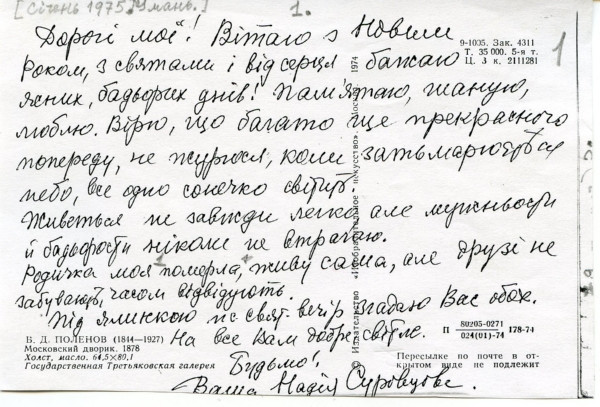 [Січень 1975. Умань.]
1.
Дорогі мої! Вітаю з Новим
роком, з святами і від серця бажаю
ясних, бадьорих днів! Пам'ятаю, шаную,
люблю. Вірю, що багато ще прекрасного
попереду, не журюся, коли затьмарюється
небо, все одно сонечко світить.
Живеться не завжди легко але мужності
й бадьорости ніколи не втрачаю.
Родичка моя померла, живу сама, але друзі не
забувають, часом відвідують.
Під ялинкою в свят-вечір згадаю Вас обох.
На все Вам добре світле.
Будьмо!
Ваша Надія Суровцова.
9-1005. Зак. 4311
Т. 35 000. 5-я т.
Ц. 3 к. 2111281
1
© Издательство «Изобразительное искусство». Москва. 1974
В. Д. ПОЛЕНОВ (1844—1927)
Московский дворик. 1878
Холст, масло. 64,5×80,1
Государственная Третьяковская галерея
П 80205-0271
024(01)-74 178-74
Пересылке по почте в от-
крытом виде не подлежит